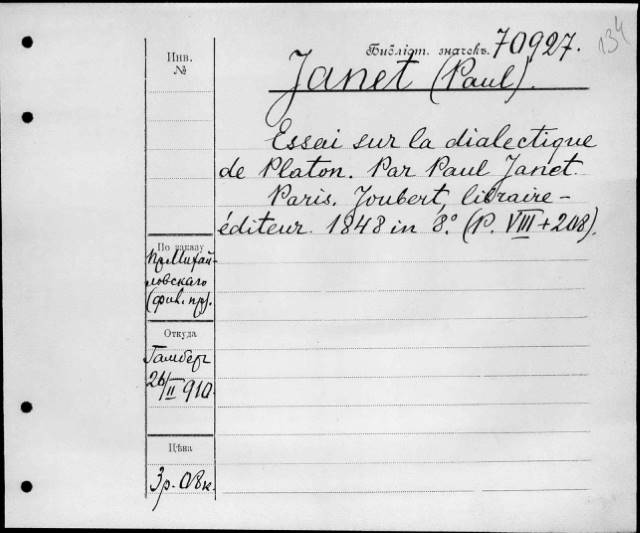 134
Библіот. значекъ. 70927.
Инв.
№
Janet (Paul).
Essai sur la dialectique
de Platon. Par Paul Janet.
Paris. Joubert, libraire-
éditeur. 1848 in 8.° (P. VIII + 208).
По заказу
пр. Михай-
ловскаго
Откуда
Гамбер
26/II 910.
Цѣна
3р. 08к.